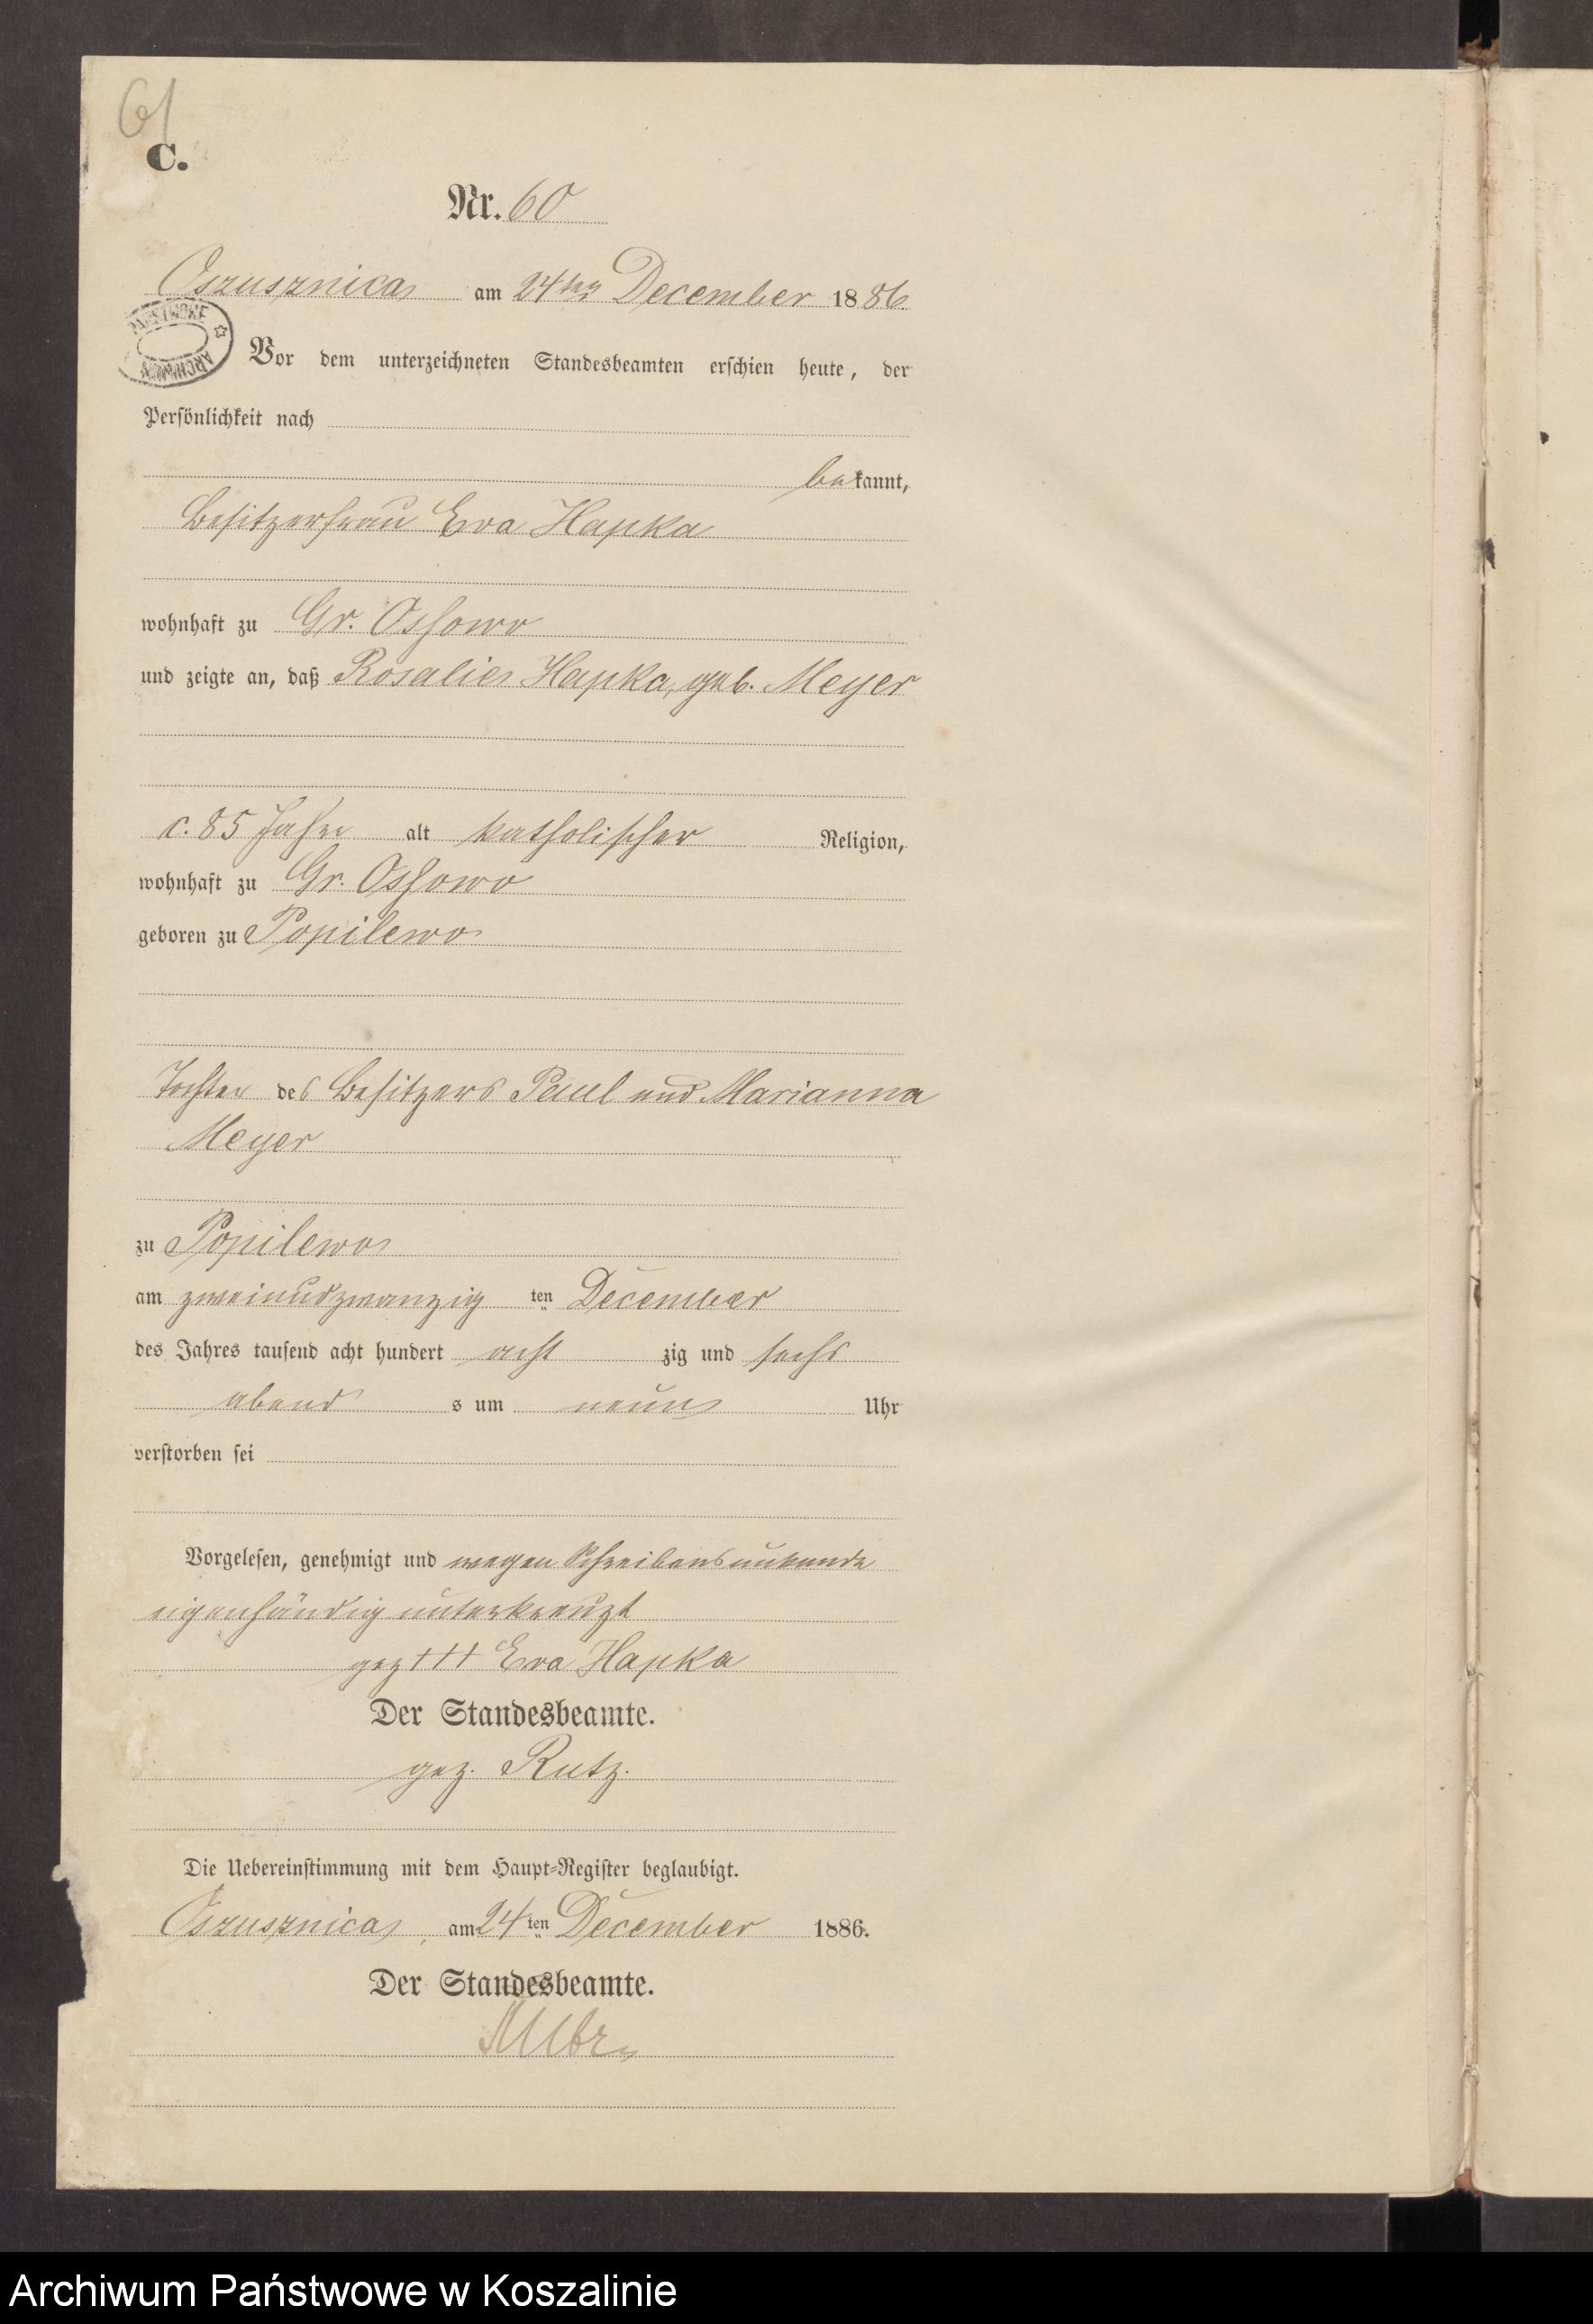 61
C.
Nr. 60
Oszusznica am 24ten December 1886
PAŃSTWOWE ARCHIWUM
Vor dem unterzeichneten Standesbeamten erschien heute, der
Persönlichkeit nach
bekannt,
Besitzerfrau Eva Hapka
wohnhaft zu Gr. Ossowo
und zeigte an, daß Rosalie Hapka, geb. Meyer
c. 85 Jahre alt katholischer Religion,
wohnhaft zu Gr. Ossowo
geboren zu Popilewo
Tochter des Besitzers Paul und Marianna
Meyer
zu Popilewo
am zweiundzwanzig ten December
des Jahres tausend acht hundert acht zig und sechs
abend s um neun Uhr
verstorben sei
Vorgelesen, genehmigt und wegen Schreibensunkunde
eigenhändig unterkreuzt
gez +++ Eva Hapka
Der Standesbeamte.
gez. Rutz.
Die Uebereinstimmung mit dem Haupt-Register beglaubigt.
Oszusznica, am 24ten December 1886.
Der Standesbeamte.
Archiwum Państwowe w Koszalinie